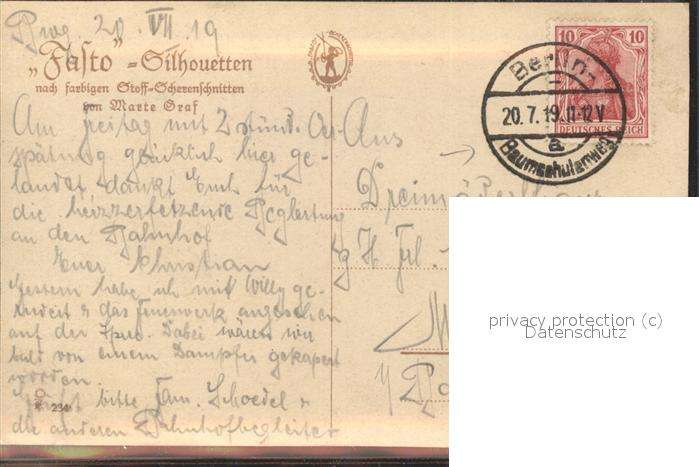 20. VII 19
„Fasto“ = Silhouetten
nach farbigen Stoff-Scherenschnitten
von Marte Graf
Am Freitag mit 2 stünd.
spätung glücklich hier ge-
landet dankt Euch für
die herzzerfetzende Begleitung
an den Bahnhof
Euer Christian
Gestern habe ich mit Willy ge-
rudert & das Feuerwerk angesehen
auf der Spree. Dabei wären wir
bald von einem Dampfer gekapert
worden.
bitte Fam. Schoedel &
die anderen Bahnhofbegleiter
234
10 10
DEUTSCHES REICH
Berlin-
20.7.19. 11-12 V
a
Baumschulenweg
Dreimäderlhaus
privacy protection (c)
Datenschutz